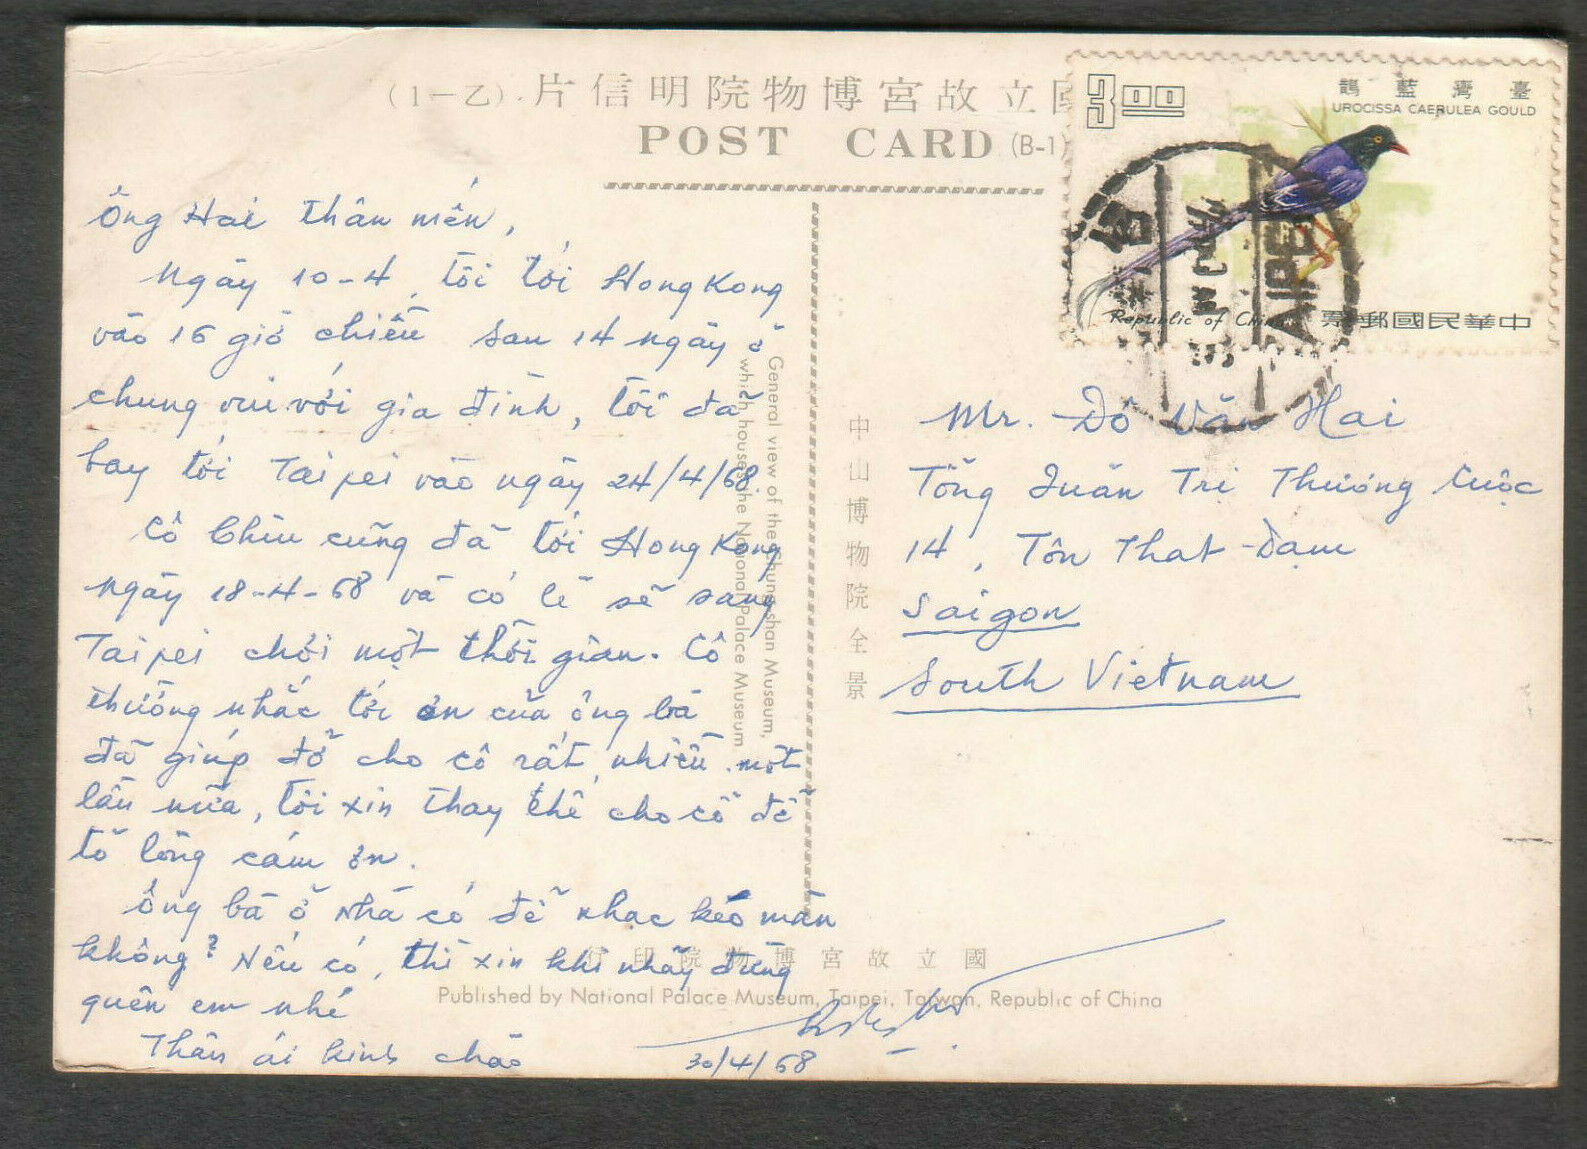 (1－乙)．片信明院物博宮故立國
POST CARD (B-1)
3.00
鵲藍灣臺
UROCISSA CAERULEA GOULD
Republic of China
票郵國民華中
TAIPEI
Ông Hai thân mến,
Ngày 10-4, tôi tới Hong Kong
vào 16 giờ chiều sau 14 ngày ở
chung vui với gia đình, tôi đã
bay tới Taipei vào ngày 24/4/68.
Cô Chìu cũng đã tới Hong Kong
ngày 18-4-68 và có lẽ sẽ sang
Taipei chơi một thời gian. Cô
thường nhắc tới ơn của ông bà
đã giúp đỡ cho cô rất nhiều. một
lần nữa, tôi xin thay thế cho cô để
tỏ lòng cám ơn.
Ông bà ở nhà có để nhạc kéo màn
không? Nếu có, thì xin khi nhẩy đừng
quên em nhé
Thân ái kính chào
30/4/68
General view of the Chung-shan Museum,
which houses the National Palace Museum
中山博物院全景
Mr. Đỗ Văn Hai
Tổng Quản Trị Thương Cuộc
14, Tôn That-Đạm
Saigon
South Vietnam
行印院物博宮故立國
Published by National Palace Museum, Taipei, Taiwan, Republic of China